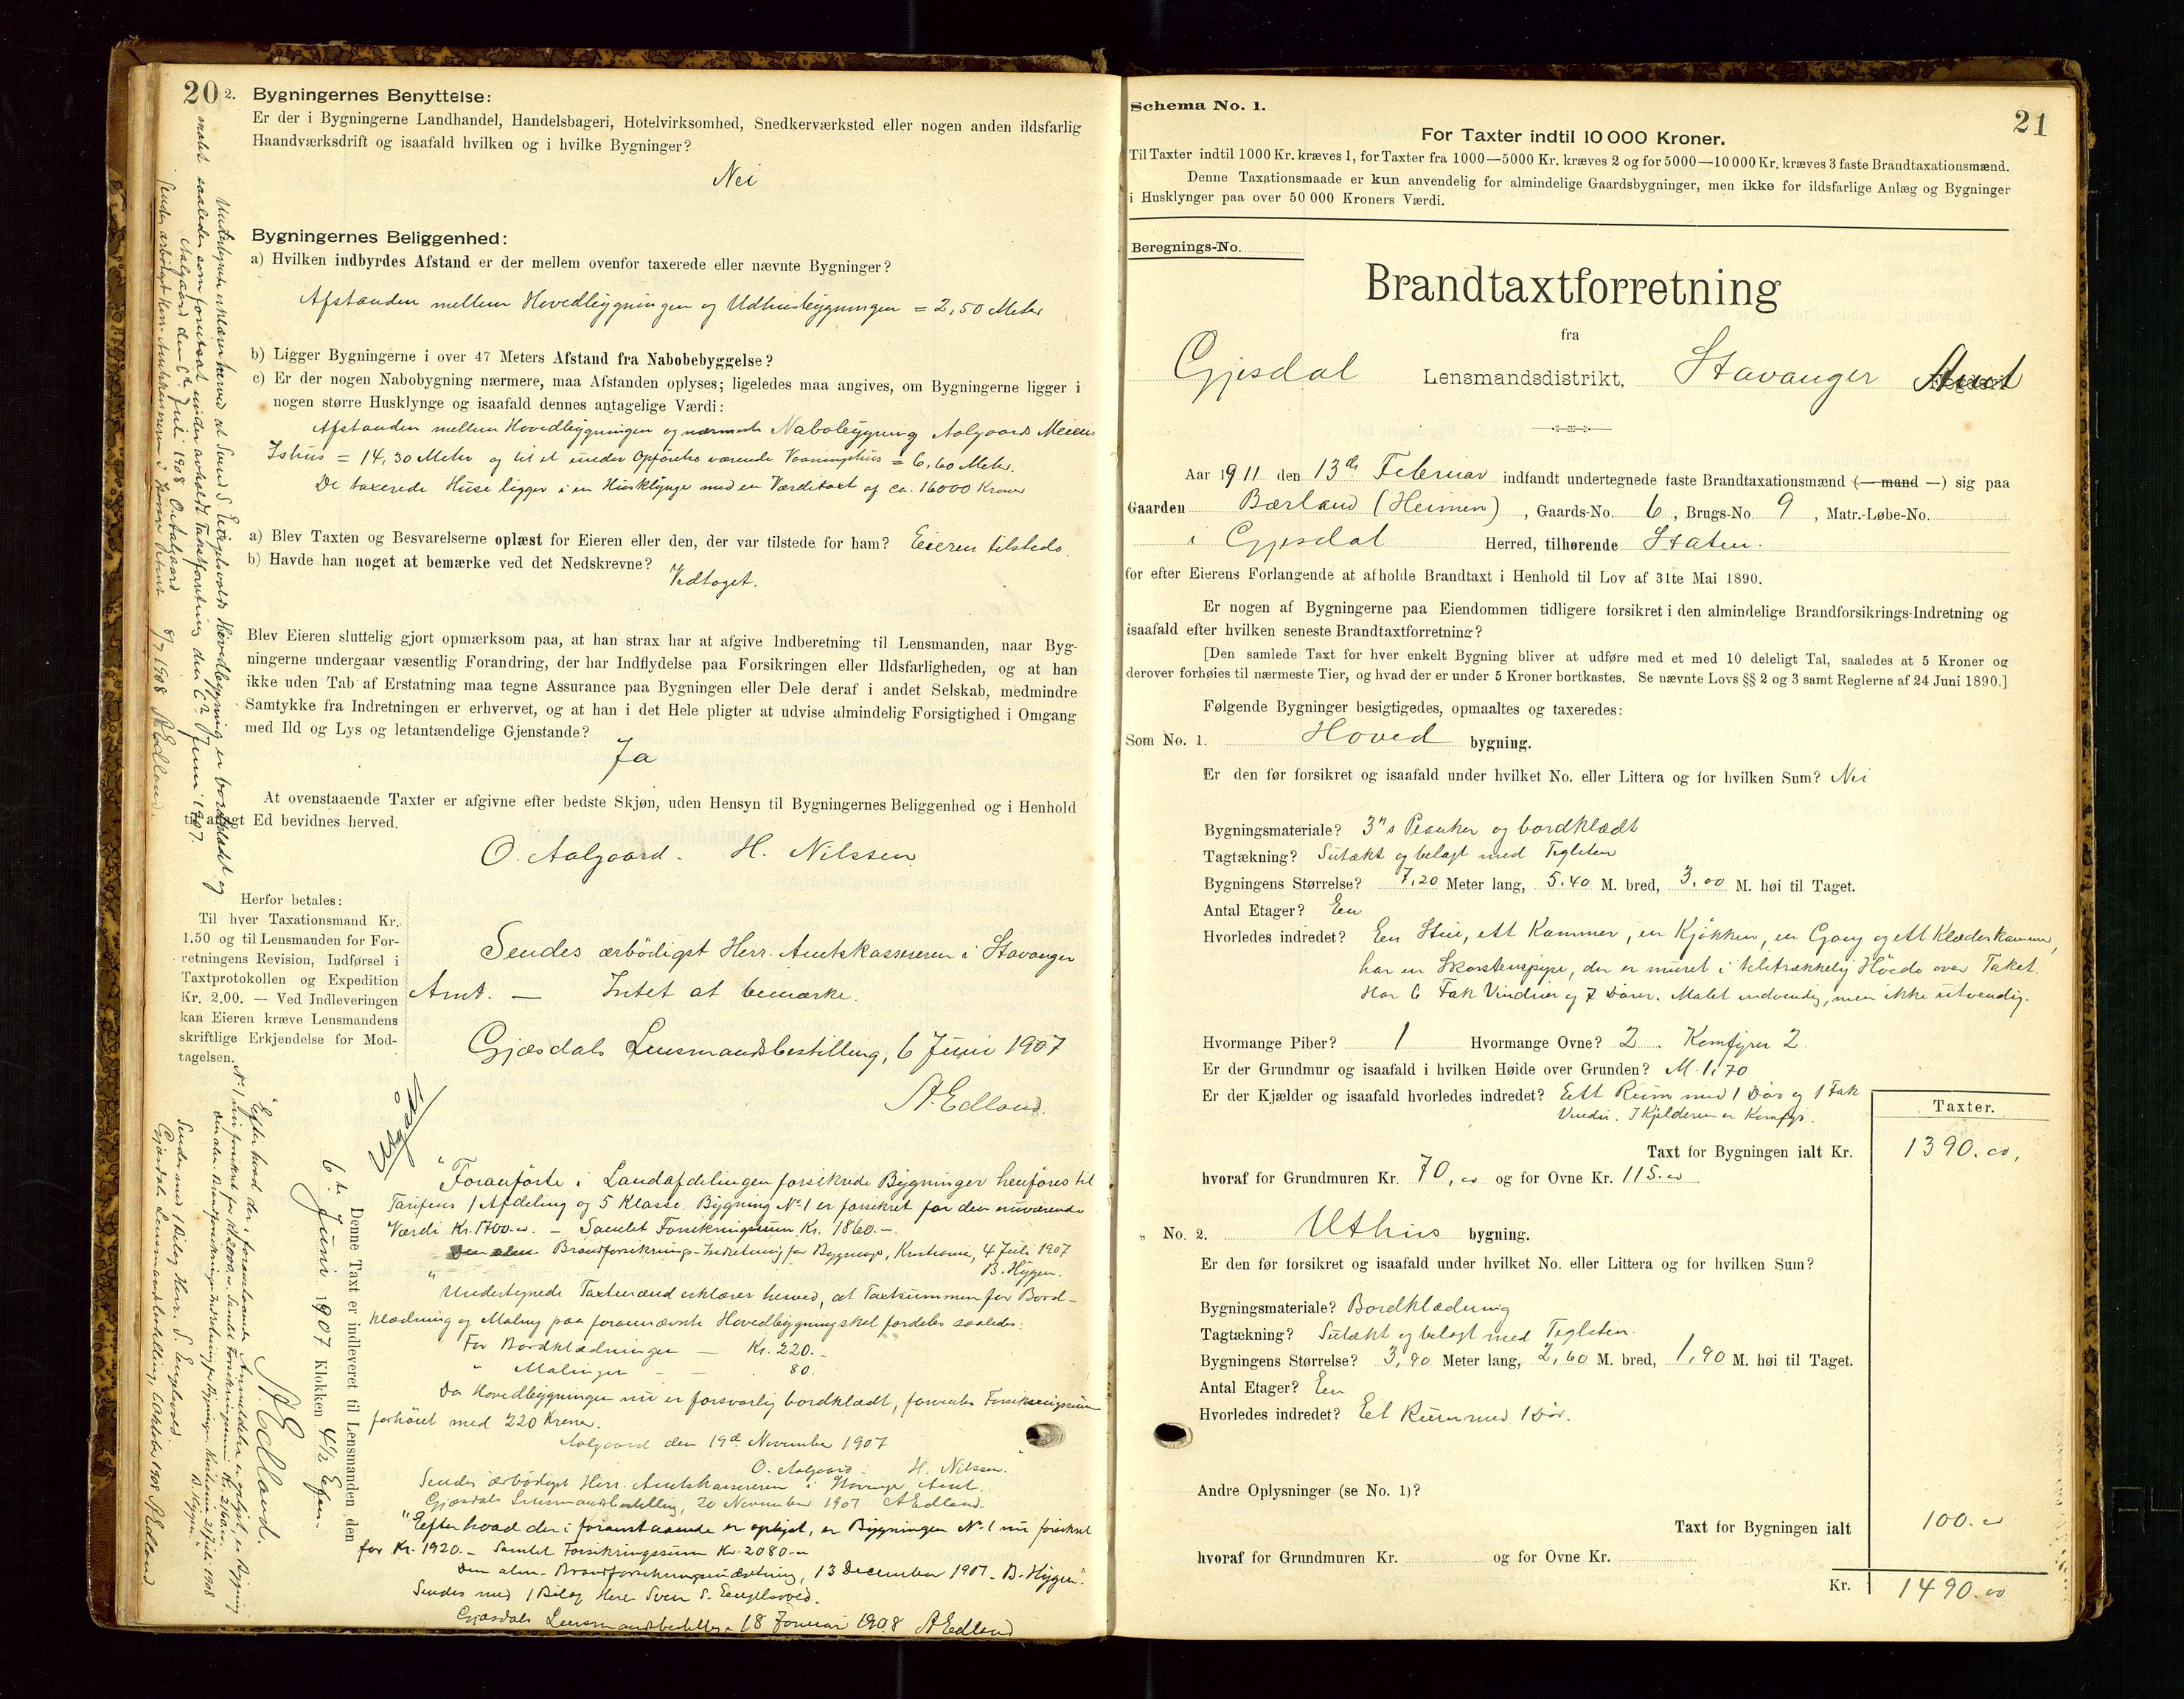 20
2. Bygningernes Benyttelse:
Er der i Bygningerne Landhandel, Handelsbageri, Hotelvirksomhed, Snedkerværksted eller nogen anden ildsfarlig
Haandværksdrift og isaafald hvilken og i hvilke Bygninger?
Nei
Bygningernes Beliggenhed:
a) Hvilken indbyrdes Afstand er der mellem ovenfor taxerede eller nævnte Bygninger?
Afstanden mellem Hovedbygningen og Udhusbygningen = 2,50 Meter
b) Ligger Bygningerne i over 47 Meters Afstand fra Nabobebyggelse?
c) Er der nogen Nabobygning nærmere, maa Afstanden oplyses; ligeledes maa angives, om Bygningerne ligger i
nogen større Husklynge og isaafald dennes antagelige Værdi:
Afstanden mellem Hovedbygningen og nærmeste Nabobygning Aalgaards Meieris
Ishus = 14,30 Meter og til et under Opførelse værende Vaaningshus = 6,60 Meter.
De taxerede Huse ligger i en Husklynge med en Værditaxt af ca. 16000 Kroner
a) Blev Taxten og Besvarelserne oplæst for Eieren eller den, der var tilstede for ham? Eieren tilstede.
b) Havde han noget at bemærke ved det Nedskrevne?
Vedtoget.
Blev Eieren sluttelig gjort opmærksom paa, at han strax har at afgive Indberetning til Lensmanden, naar Byg-
ningerne undergaar væsentlig Forandring, der har Indflydelse paa Forsikringen eller Ildsfarligheden, og at han
ikke uden Tab af Erstatning maa tegne Assurance paa Bygningen eller Dele deraf i andet Selskab, medmindre
Samtykke fra Indretningen er erhvervet, og at han i det Hele pligter at udvise almindelig Forsigtighed i Omgang
med Ild og Lys og letantændelige Gjenstande?
Ja
At ovenstaaende Taxter er afgivne efter bedste Skjøn, uden Hensyn til Bygningernes Beliggenhed og i Henhold
til aflagt Ed bevidnes herved.
O. Aalgaard. H. Nilssen
Herfor betales:
Til hver Taxationsmand Kr.
1.50 og til Lensmanden for For-
retningens Revision, Indførsel i
Taxtprotokollen og Expedition
Kr. 2.00. — Ved Indleveringen
kan Eieren kræve Lensmandens
skriftlige Erkjendelse for Mod-
tagelsen.
Sendes ærbödigst Herr. Amtskassereren i Stavanger
Amt. — Intet at bemærke.
Gjæsdals Lensmandsbestilling, 6 Juni 1907
A. Edland.
Udgaat
"Foranförte i Landafdelingen forsikrede Bygninger henföres til
Tarifens 1 Afdeling og 5 Klasse. Bygning No 1 er forsikret for den nuværende
Værdi Kr. 1700.00. — Samlet Forsikringssum Kr. 1860.—
Den alm. Brandforsikrings-Indretning for Bygninger, Kristiania, 4 Juli 1907
B. Hygen.
"Undertegnede Taxtmænd erklærer herved, at Taxtsummen for Bord-
klædning og Maling paa forannævnte Hovedbygning skal fordeles saaledes:
For Bordklædningen — Kr. 220.—
" Malingen — - 80.
Da Hovedbygningen nu er forsvarlig bordklædt, forventes Forsikringssum
forhöiet med 220 Kroner.
Aalgaard den 19de November 1907
O. Aalgaard. H. Nilssen."
Sendes ærbödigst Herr. Amtskassereren i Stavanger Amt.
Gjæsdals Lensmandsbestilling, 20 November 1907 A Edland.
"Efter hvad der i foranstaaende er oplyst, er Bygningen No 1 nu forsikret
for Kr. 1920.— Samlet Forsikringssum Kr. 2080.00
Den alm. Brandforsikringsindretning, 13 December 1907. B. Hygen."
Sendes med 1 Bilag Herr Sven S. Engelsvold.
Gjæsdals Lensmandsbestilling 18 Januar 1908 A Edland
Denne Taxt er indleveret til Lensmanden den
6te Juni 1907 Klokken 4½ Efm.
A Edland.
"Efter hvad der i foranstaaende Anmeldelse er oplyst, er Bygning
No 1 nu forsikret for Kr. 2000.00. Samlet Forsikringssum Kr. 2160.00.
Den alm. Brandforsikringsindretning for Bygninger, Kristiania 21 Juli 1908
B. Hygen."
Sendes med 1 Bilag Herr. S. Engelsvold.
Gjæsdals Lensmandsbestilling, Oktober 1908 A Edland
Undertegnede erklærer herved at Sven S. Engelsvolds Hovedbygning er bordklædt og
malet saaledes som forudsat under avholdt Taxtforretning den 6te Juni 1907.
Aalgaard den 6te Juli 1908 O. Aalgaard
Sendes ærbödigst Herr. Amtskassereren i Stavanger Amt 8/7 1908 A Edland.
21
Schema No. 1.
For Taxter indtil 10 000 Kroner.
Til Taxter indtil 1000 Kr. kræves 1, for Taxter fra 1000—5000 Kr. kræves 2 og for 5000—10 000 Kr. kræves 3 faste Brandtaxationsmænd.
Denne Taxationsmaade er kun anvendelig for almindelige Gaardsbygninger, men ikke for ildsfarlige Anlæg og Bygninger
i Husklynger paa over 50 000 Kroners Værdi.
Beregnings-No.
Brandtaxtforretning
fra
Gjesdal Lensmandsdistrikt, Stavanger Amt
Aar 1911 den 13de Februar indfandt undertegnede faste Brandtaxationsmænd (— mand —) sig paa
Gaarden Bærland (Heimen), Gaards-No. 6, Brugs-No. 9, Matr.-Løbe-No.
i Gjesdal Herred, tilhørende Staten.
for efter Eierens Forlangende at afholde Brandtaxt i Henhold til Lov af 31te Mai 1890.
Er nogen af Bygningerne paa Eiendommen tidligere forsikret i den almindelige Brandforsikrings-Indretning og
isaafald efter hvilken seneste Brandtaxtforretning?
[Den samlede Taxt for hver enkelt Bygning bliver at udføre med et med 10 deleligt Tal, saaledes at 5 Kroner og
derover forhøies til nærmeste Tier, og hvad der er under 5 Kroner bortkastes. Se nævnte Lovs §§ 2 og 3 samt Reglerne af 24 Juni 1890.]
Følgende Bygninger besigtigedes, opmaaltes og taxeredes:
Som No. 1. Hoved bygning.
Er den før forsikret og isaafald under hvilket No. eller Littera og for hvilken Sum? Nei
Bygningsmateriale? 3"s Planker og bordklædt
Tagtækning? Sutækt og belagt med Teglsten
Bygningens Størrelse? 7,20 Meter lang, 5.40 M. bred, 3.00 M. høi til Taget.
Antal Etager? Een
Hvorledes indredet? Een Stue, ett Kammer, en Kjøkken, en Gang og ett Klædeskammer,
har en Skorstenspipe, der er muret i tilstrækkelig Höide over Taket.
Har 6 Fak Vinduer og 7 Dörer. Malet indvendig, men ikke utvendig.
Hvormange Piber? 1 Hvormange Ovne? 2. Komfyrer 2
Er der Grundmur og isaafald i hvilken Høide over Grunden? M. 1,70
Er der Kjælder og isaafald hvorledes indredet? Ett Rum med 1 Dör og 1 Fak
Vindu. I Kjelderen er Komfyr.
Taxter.
Taxt for Bygningen ialt Kr. 1390.00,
hvoraf for Grundmuren Kr. 70,00 og for Ovne Kr. 115.00
" No. 2. Uthus bygning.
Er den før forsikret og isaafald under hvilket No. eller Littera og for hvilken Sum?
Bygningsmateriale? Bordklædning
Tagtækning? Sutækt og belagt med Teglsten.
Bygningens Størrelse? 3,90 Meter lang, 2,60 M. bred, 1,90 M. høi til Taget.
Antal Etager? Een
Hvorledes indredet? Et Rum med 1 Dör.
Andre Oplysninger (se No. 1)?
Taxt for Bygningen ialt 100.00
hvoraf for Grundmuren Kr. og for Ovne Kr.
Kr. 1490.00